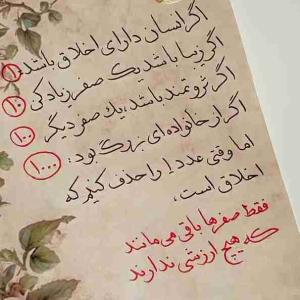 اگر انسان دارای اخلاق باشد: ۱
اگر زیبا باشد یک صفر زیاد کن ۱۰
اگر ثروتمند باشد، یک صفر دیگر ۱۰۰
اگر از خانواده‌ای بزرگ بود: ۱۰۰۰
اما وقتی عدد ۱ را حذف کنیم که
اخلاق است،
فقط صفرها باقی می‌مانند
که هیچ ارزشی ندارند